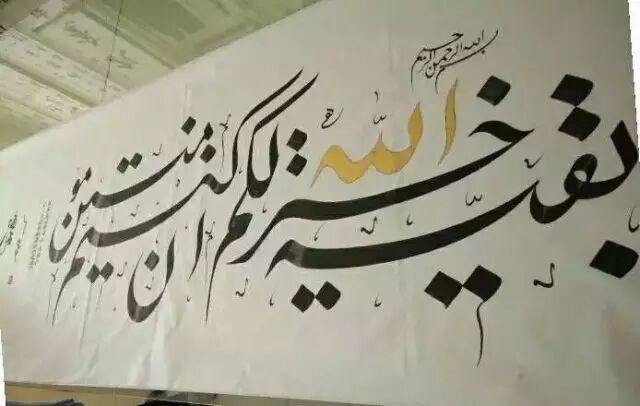 بسم الله الرحمن الرحیم
بقیة الله خیر لکم ان کنتم مؤمنین